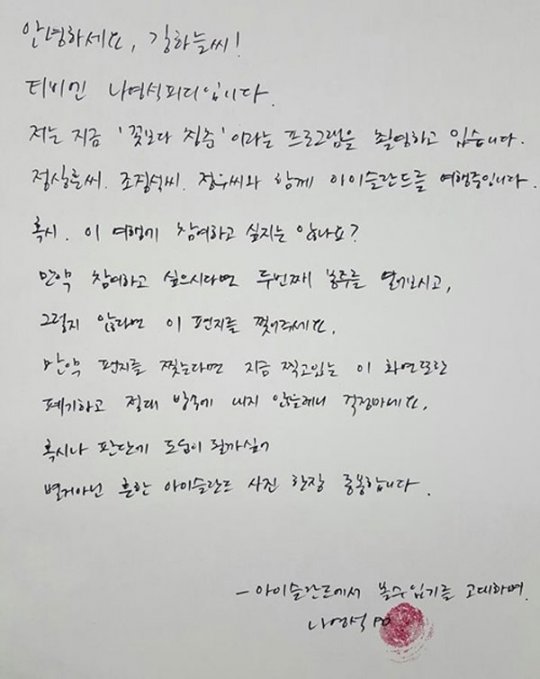 안녕하세요, 김하늘씨!
티비엔 나영석피디입니다.
저는 지금 '꽃보다 청춘' 이라는 프로그램을 촬영하고 있습니다.
정상훈씨. 조정석씨. 정우씨와 함께 아이슬란드를 여행중입니다.
혹시. 이 여행에 참여하고 싶지는 않나요?
만약 참여하고 싶으시다면 두번째 봉투를 열어보시고,
그렇지 않다면 이 편지를 찢어주세요.
만약 편지를 찢는다면 지금 찍고있는 이 화면또한
폐기하고 절대 방송에 내지 않을테니 걱정마세요.
혹시나 판단에 도움이 될까싶어
별거아닌 흔한 아이슬란드 사진 한장 동봉합니다.
- 아이슬란드에서 볼수있기를 고대하며.
나영석 PD